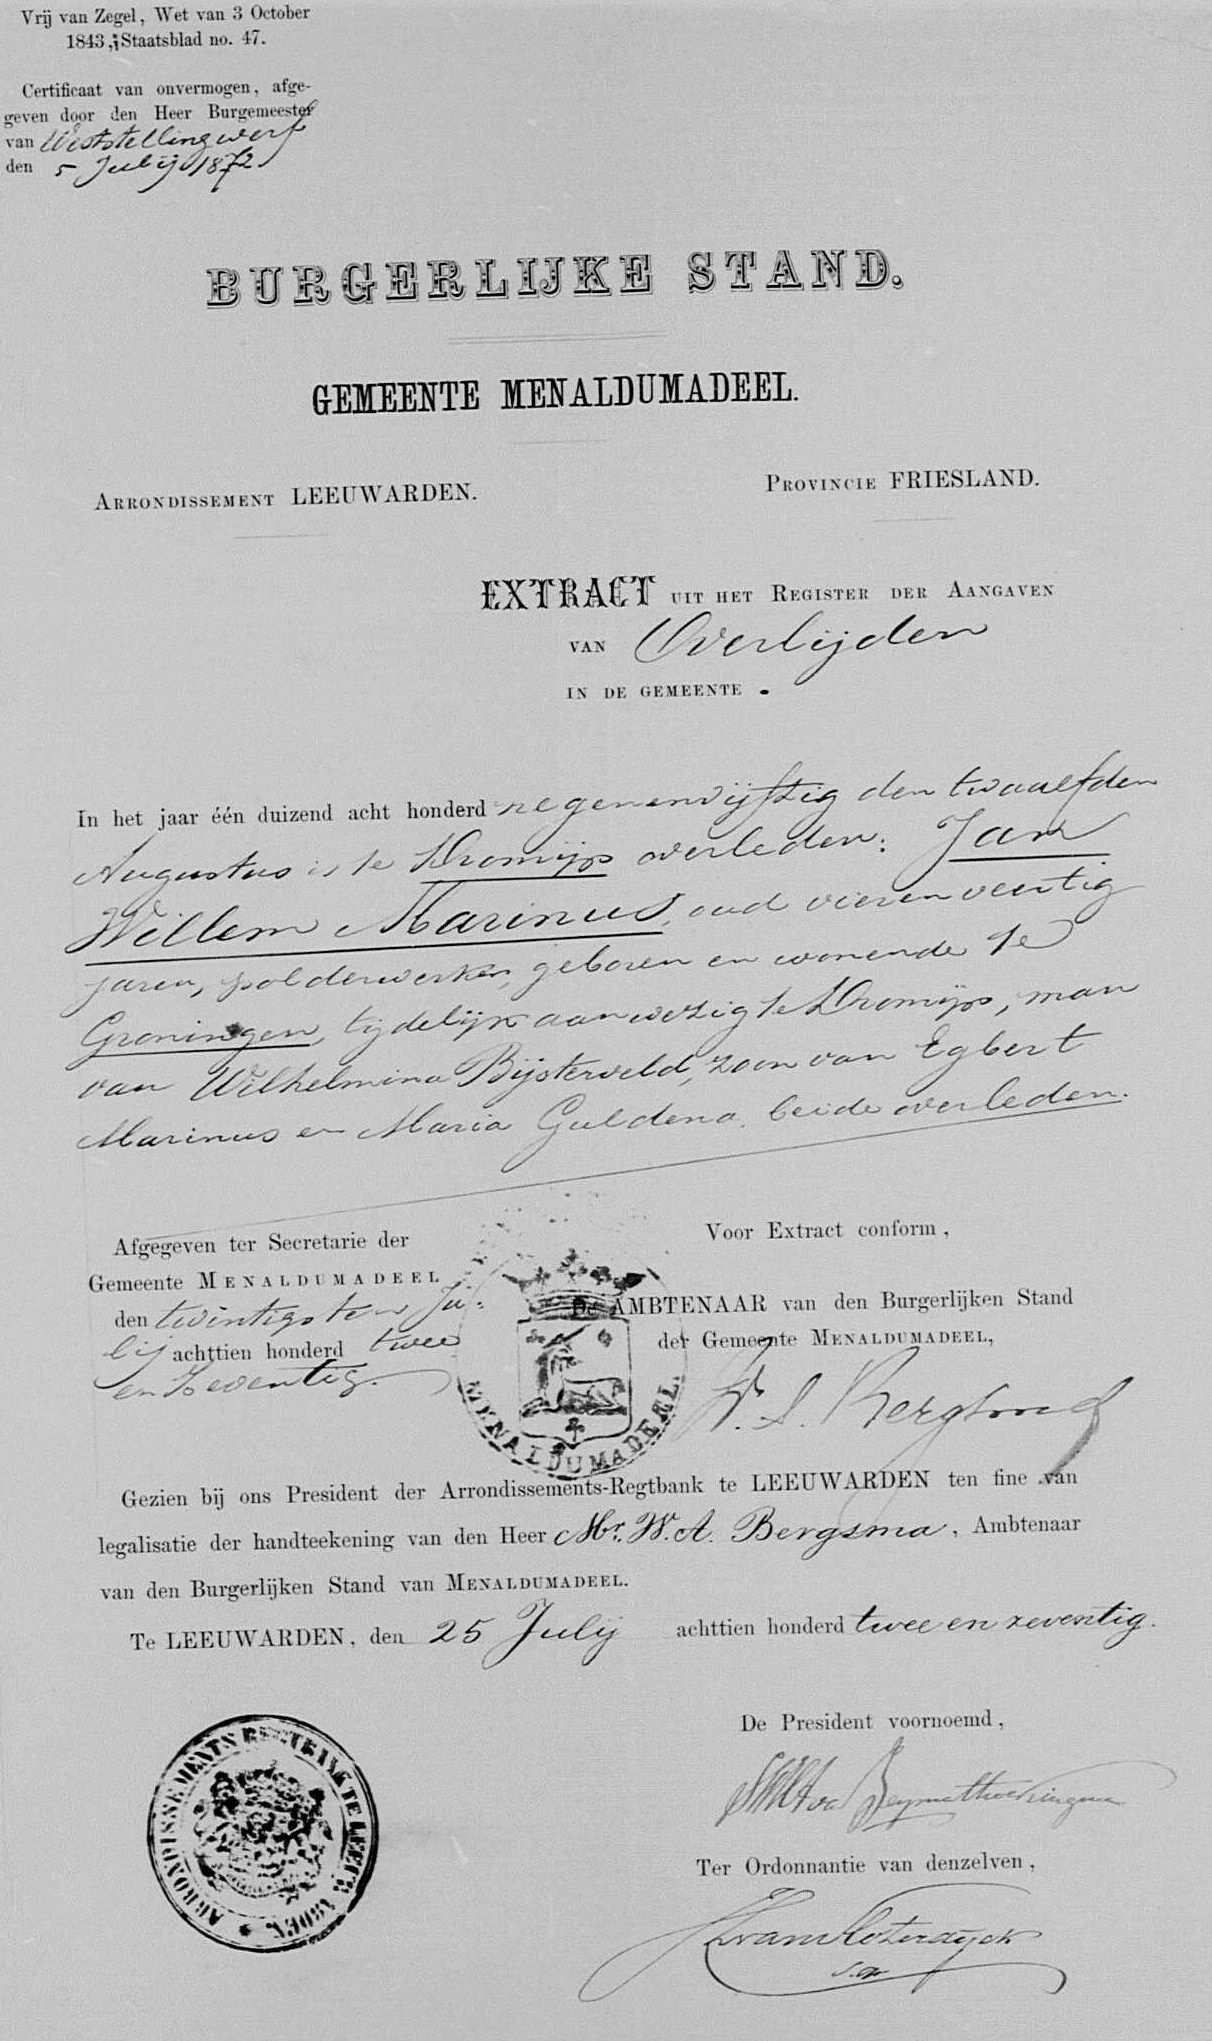 Vrij van Zegel, Wet van 3 October
1843, Staatsblad no. 47.
Certificaat van onvermogen, afge-
geven door den Heer Burgemeester
van Weststellingwerf
den 5 Julij 1872
BURGERLIJKE STAND.
GEMEENTE MENALDUMADEEL.
ARRONDISSEMENT LEEUWARDEN.
PROVINCIE FRIESLAND.
EXTRACT UIT HET REGISTER DER AANGAVEN
VAN Overlijden
IN DE GEMEENTE .
In het jaar één duizend acht honderd negenenvijftig den twaalfden
Augustus is te Dronrijp overleden: Jan
Willem Marinus, oud vierenveertig
jaren, polderwerker, geboren en wonende te
Groningen, tijdelijk aanwezig te Dronrijp, man
van Wilhelmina Bijsterveld, zoon van Egbert
Marinus en Maria Guldena, beide overleden.
Afgegeven ter Secretarie der
Gemeente MENALDUMADEEL
den twintigsten Ju-
lij achttien honderd twee
en zeventig.
Voor Extract conform,
De AMBTENAAR van den Burgerlijken Stand
der Gemeente MENALDUMADEEL,
MENALDUMADEEL.
Gezien bij ons President der Arrondissements-Regtbank te LEEUWARDEN ten fine van
legalisatie der handteekening van den Heer Mr. W. A. Bergsma, Ambtenaar
van den Burgerlijken Stand van MENALDUMADEEL.
Te LEEUWARDEN, den 25 Julij achttien honderd twee en zeventig.
De President voornoemd,
ARRONDISSEMENTS REGTBANK TE LEEUWARDEN
Ter Ordonnantie van denzelven,